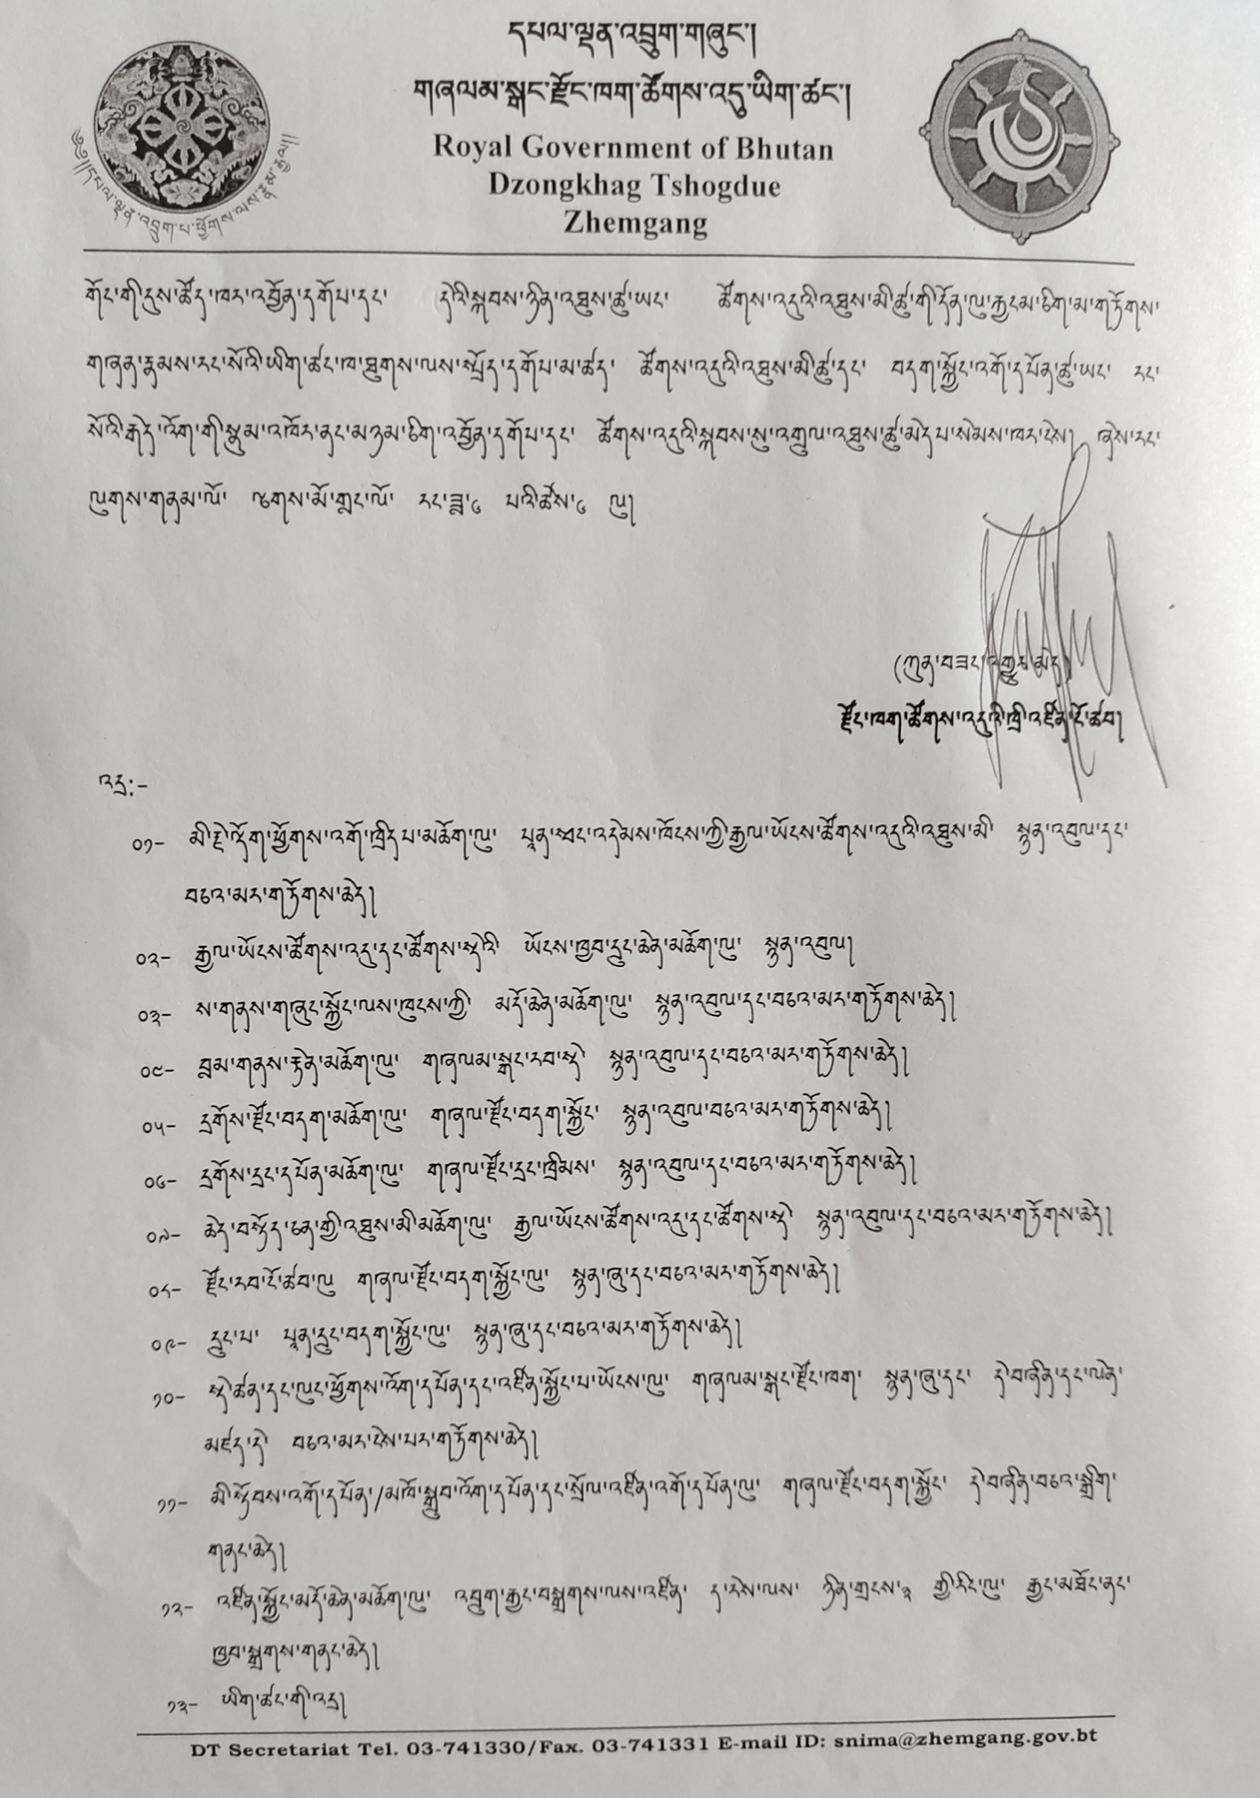 དཔལ་ལྡན་འབྲུག་གཞུང་།
གཞལམ་སྒང་རྫོང་ཁག་ཚོགས་འདུ་ཡིག་ཚང་།
Royal Government of Bhutan
Dzongkhag Tshogdue
Zhemgang
གོང་གི་དུས་ཚོད་ཁར་འབྱོན་དགོཔ་དང་ དེའི་སྐབས་ཉིན་འཐུས་ཚུ་ཡང་ ཚོགས་འདུའི་འཐུས་མི་ཚུ་གི་དོན་ལུ་རྐྱངམ་ཅིག་མ་གཏོགས་
གཞན་རྣམས་རང་སོའི་ཡིག་ཚང་ཁ་ཐུགས་ལས་སྤྲོད་དགོཔ་མ་ཚད་ ཚོགས་འདུའི་འཐུས་མི་ཚུ་དང་ བདག་སྐྱོང་འགོ་དཔོན་ཚུ་ཡང་ རང་
སོའི་རྒེད་འོག་གི་སྣུམ་འཁོར་ནང་མཉམ་ཅིག་འབྱོན་དགོཔ་དང་ ཚོགས་འདུའི་སྐབས་སུ་འགྲུལ་འཐུས་ཚུ་མེདཔ་སེམས་ཁར་ངེས། ཞེས་རང་
ལུགས་གནམ་ལོ་ ལྕགས་མོ་གླང་ལོ་ རང་ཟླ་༦ པའི་ཚེས་༦ ལུ།
(ཀུན་བཟང་འགྱུར་མེད)
རྫོང་ཁག་ཚོགས་འདུའི་ཁྲི་འཛིན་ངོ་ཚབ།
འདྲ:-
༠༡- མི་རྗེ་ལྡོག་ཕྱོགས་འགོ་ཁྲིདཔ་མཆོག་ལུ་ པཱན་སྦང་འདེམས་ཁོངས་ཀྱི་རྒྱལ་ཡོངས་ཚོགས་འདུའི་འཐུས་མི་ སྙན་འབུལ་དང་
བཅའ་མར་གཏོགས་ཆེད།
༠༢- རྒྱལ་ཡོངས་ཚོགས་འདུ་དང་ཚོགས་སྡེའི་ ཡོངས་ཁྱབ་དྲུང་ཆེན་མཆོག་ལུ་ སྙན་འབུལ།
༠༣- ས་གནས་གཞུང་སྐྱོང་ལས་ཁུངས་ཀྱི་ མདོ་ཆེན་མཆོག་ལུ་ སྙན་འབུལ་དང་བཅའ་མར་གཏོགས་ཆེད།
༠༤- བླམ་གནས་རྟེན་མཆོག་ལུ་ གཞལམ་སྒང་རབ་སྡེ་ སྙན་འབུལ་དང་བཅའ་མར་གཏོགས་ཆེད།
༠༥- དྲགོས་རྫོང་བདག་མཆོག་ལུ་ གཞལ་རྫོང་བདག་སྐྱོང་ སྙན་འབུལ་བཅའ་མར་གཏོགས་ཆེད།
༠༦- དྲགོས་དྲང་དཔོན་མཆོག་ལུ་ གཞལ་རྫོང་དྲང་ཁྲིམས་ སྙན་འབུལ་དང་བཅའ་མར་གཏོགས་ཆེད།
༠༧- ཆེད་བསྟོད་ཅན་གྱི་འཐུས་མི་མཆོག་ལུ་ རྒྱལ་ཡོངས་ཚོགས་འདུ་དང་ཚོགས་སྡེ་ སྙན་འབུལ་དང་བཅའ་མར་གཏོགས་ཆེད།
༠༨- རྫོང་རབ་ངོ་ཚབ་ལུ གཞལ་རྫོང་བདག་སྐྱོང་ལུ་ སྙན་ཞུ་དང་བཅའ་མར་གཏོགས་ཆེད།
༠༩- དྲུང་པ་ པཱན་དྲུང་བདག་སྐྱོང་ལུ་ སྙན་ཞུ་དང་བཅའ་མར་གཏོགས་ཆེད།
༡༠- སྡེ་ཚན་དང་ལུང་ཕྱོགས་འོག་དཔོན་དང་འཛིན་སྐྱོང་པ་ཡོངས་ལུ་ གཞལམ་སྒང་རྫོང་ཁག་ སྙན་ཞུ་དང་ དེ་བཞིན་དང་ལེན་
མཛད་དེ་ བཅའ་མར་ངེས་པར་གཏོགས་ཆེད།
༡༡- མི་སྟོབས་འགོ་དཔོན་/མཁོ་སྒྲུབ་འོག་དཔོན་དང་སྲོལ་འཛིན་འགོ་དཔོན་ལུ་ གཞལ་རྫོང་བདག་སྐྱོང་ དེ་བཞིན་བཅའ་སྒྲིག་
གནང་ཆེད།
༡༢- འཛིན་སྐྱོང་མདོ་ཆེན་མཆོག་ལུ་ འབྲུག་རྒྱང་བསྒྲགས་ལས་འཛིན་ ད་རེས་ལས་ ཉིན་གྲངས་༣ གྱི་རིང་ལུ་ རྒྱང་མཐོང་ནང་
ཁྱབ་སྒྲགས་གནང་ཆེད།
༡༣- ཡིག་ཚང་གི་འདྲ།
DT Secretariat Tel. 03-741330/Fax. 03-741331 E-mail ID: snima@zhemgang.gov.bt